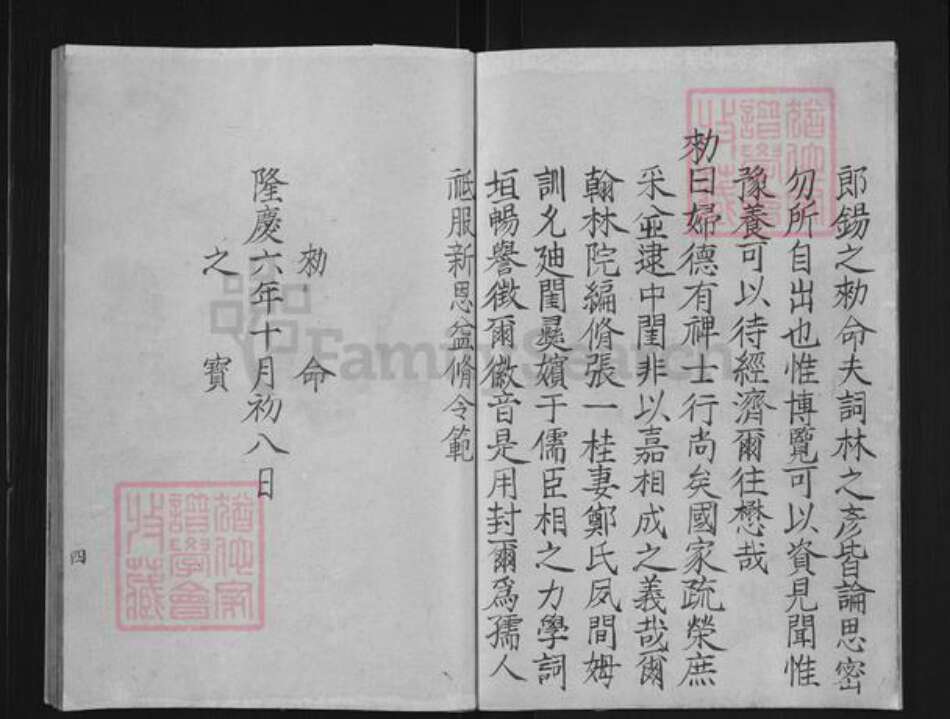 郎鍚之勑命夫詞林之彥皆論思密
勿所自出也惟博覽可以資見聞惟
豫養可以待經濟爾往懋哉
勑曰婦德有禆士行尚矣國家疏榮庶
采並逮中閨非以嘉相成之義哉爾
翰林院編脩張一桂妻鄭氏夙閒姆
訓允廸閨彛嬪于儒臣相之力學詞
垣暢譽徴爾徽音是用封爾爲孺人
祗服新恩益脩令範
勑命
隆慶六年十月初八日
之寳
四
FamilySearch